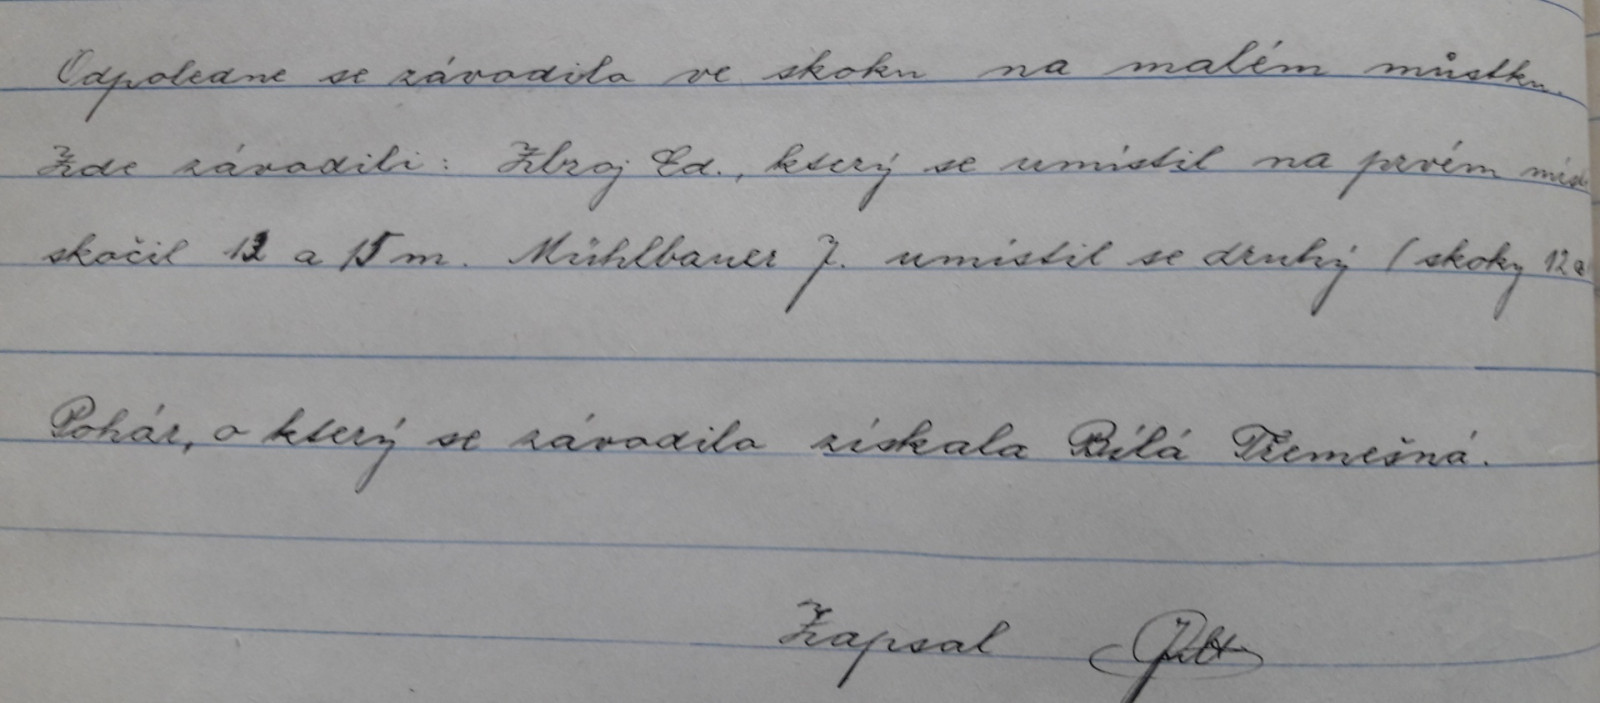 Odpoledne se závodilo ve skoku na malém můstku.
Zde závodili: Zbroj Ed., který se umístil na prvém
skočil 13 a 15 m. Mühlbauer J. umístil se druhý (skoky 12 a
Pohár, o který se závodilo získala Bílá Třemešná.
Zapsal